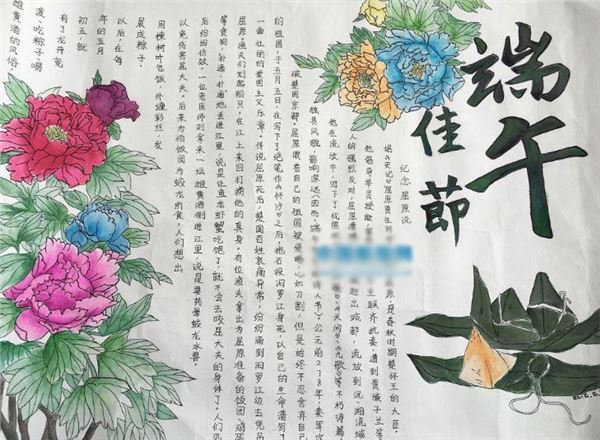 端午
佳節
纪念屈原说
据《史记》屈原贾生 屈原,是春秋时期楚怀王的大臣。
他倡导举贤授能, 主联齐抗秦,遭到贵族子兰等
人的强烈反对,屈原遭 赶出都城,流放到沅、湘流域。
他在流放中,写下了忧国 《天问》、《九歌》等不朽诗篇,
独具风貌,影响深远(因而,端午 诗人节)。公元前278年,秦军攻
破楚国京都。屈原眼看自己的祖国被侵略,心如刀割,但是始终不忍舍弃自己
的祖国,于五月五日,在写下了绝笔作《怀沙》之后,抱石投汨罗江身死,以自己的生命谱写了
一曲壮丽的爱国主义乐章。传说屈原死后,楚国百姓哀痛异常,纷纷涌到汨罗江边去凭吊
屈原。渔夫们划起船只,在江上来回打捞他的真身。有位渔夫拿出为屈原准备的饭团、鸡蛋
等食物,扑通、扑通地丢进江里,说是让鱼龙虾蟹吃饱了,就不会去咬屈大夫的身体了。人们见
后纷纷仿效。一位老医师则拿来一坛雄黄酒倒进江里,说是要药晕蛟龙水兽,
以免伤害屈大夫。后来为怕饭团为蛟龙所食,人们想出
用楝树叶包饭,外缠彩丝,发
展成粽子。
以后,在每
年的五月
初五,就
有了龙舟竞
渡、吃粽子、喝
雄黄酒的风俗。